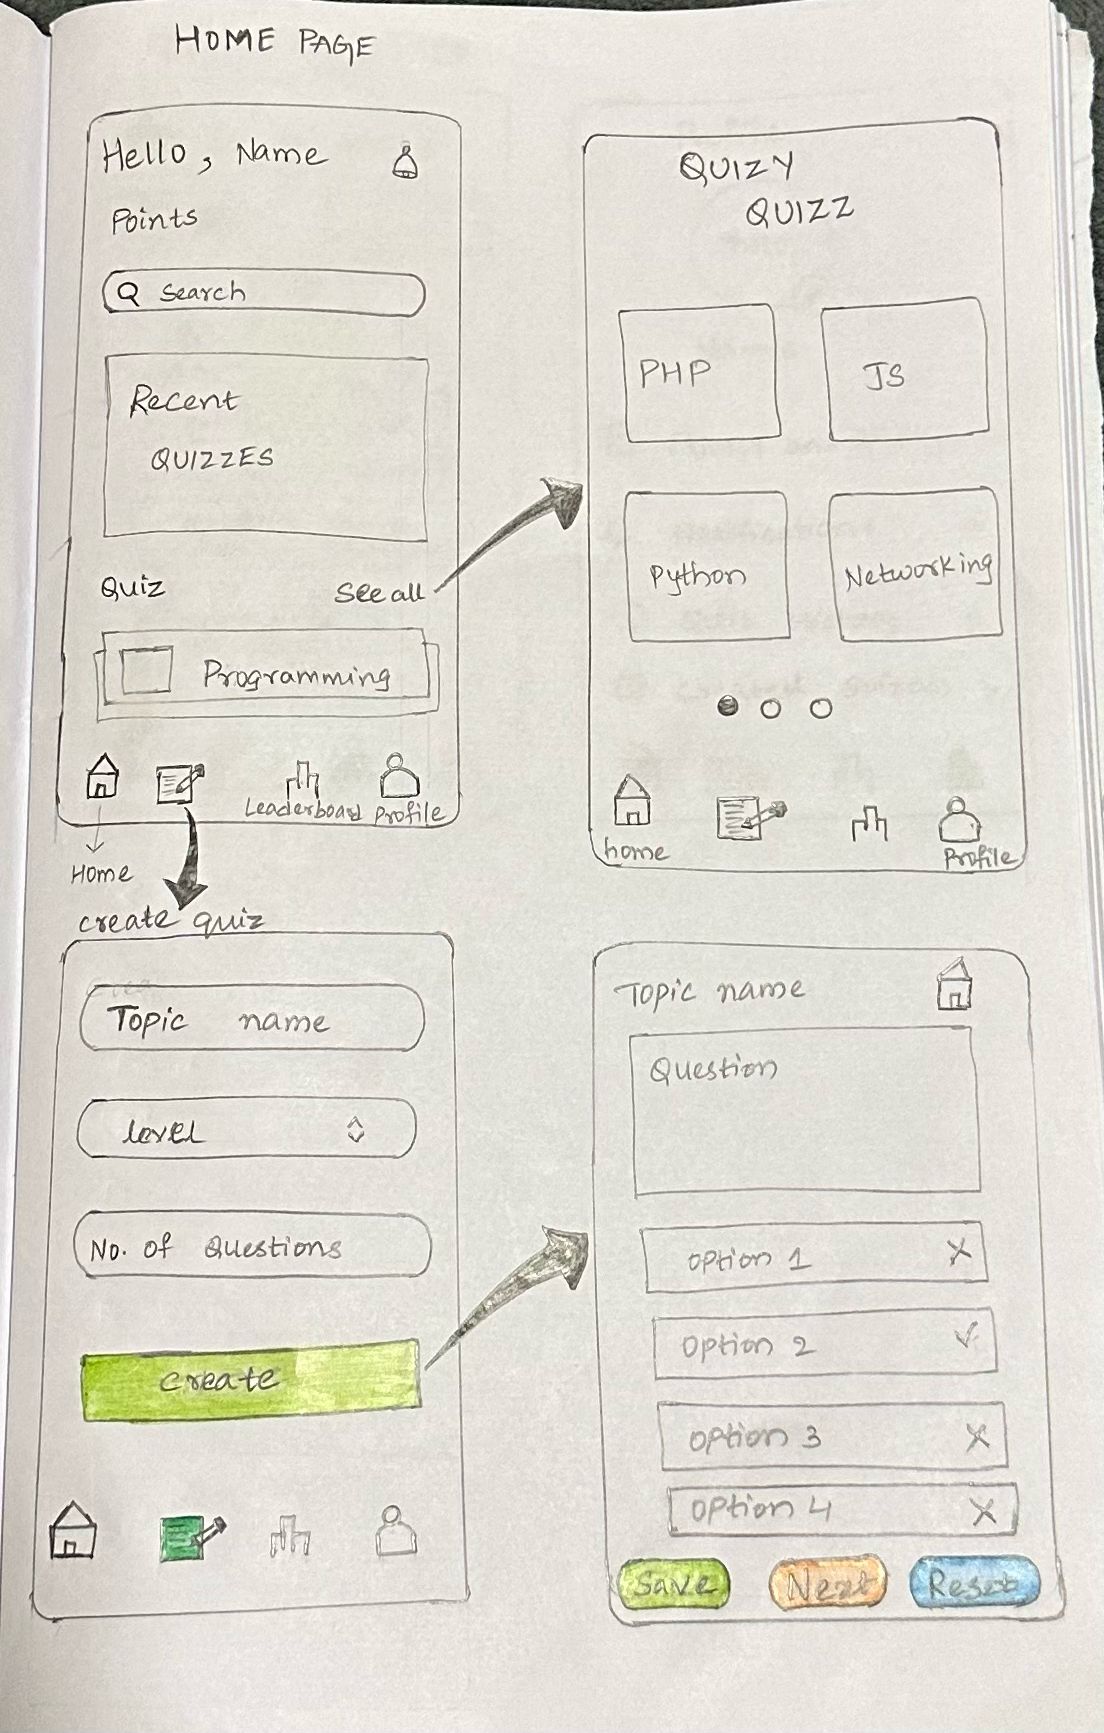 HOME PAGE
Hello, Name
Points
Search
Recent
QUIZZES
Quiz
See all
Programming
Leaderboard
Profile
Home
QUIZY
QUIZZ
PHP
JS
Python
Networking
home
Profile
create quiz
Topic name
level
No. of Questions
create
Topic name
Question
option 1
option 2
option 3
option 4
Save
Next
Reset